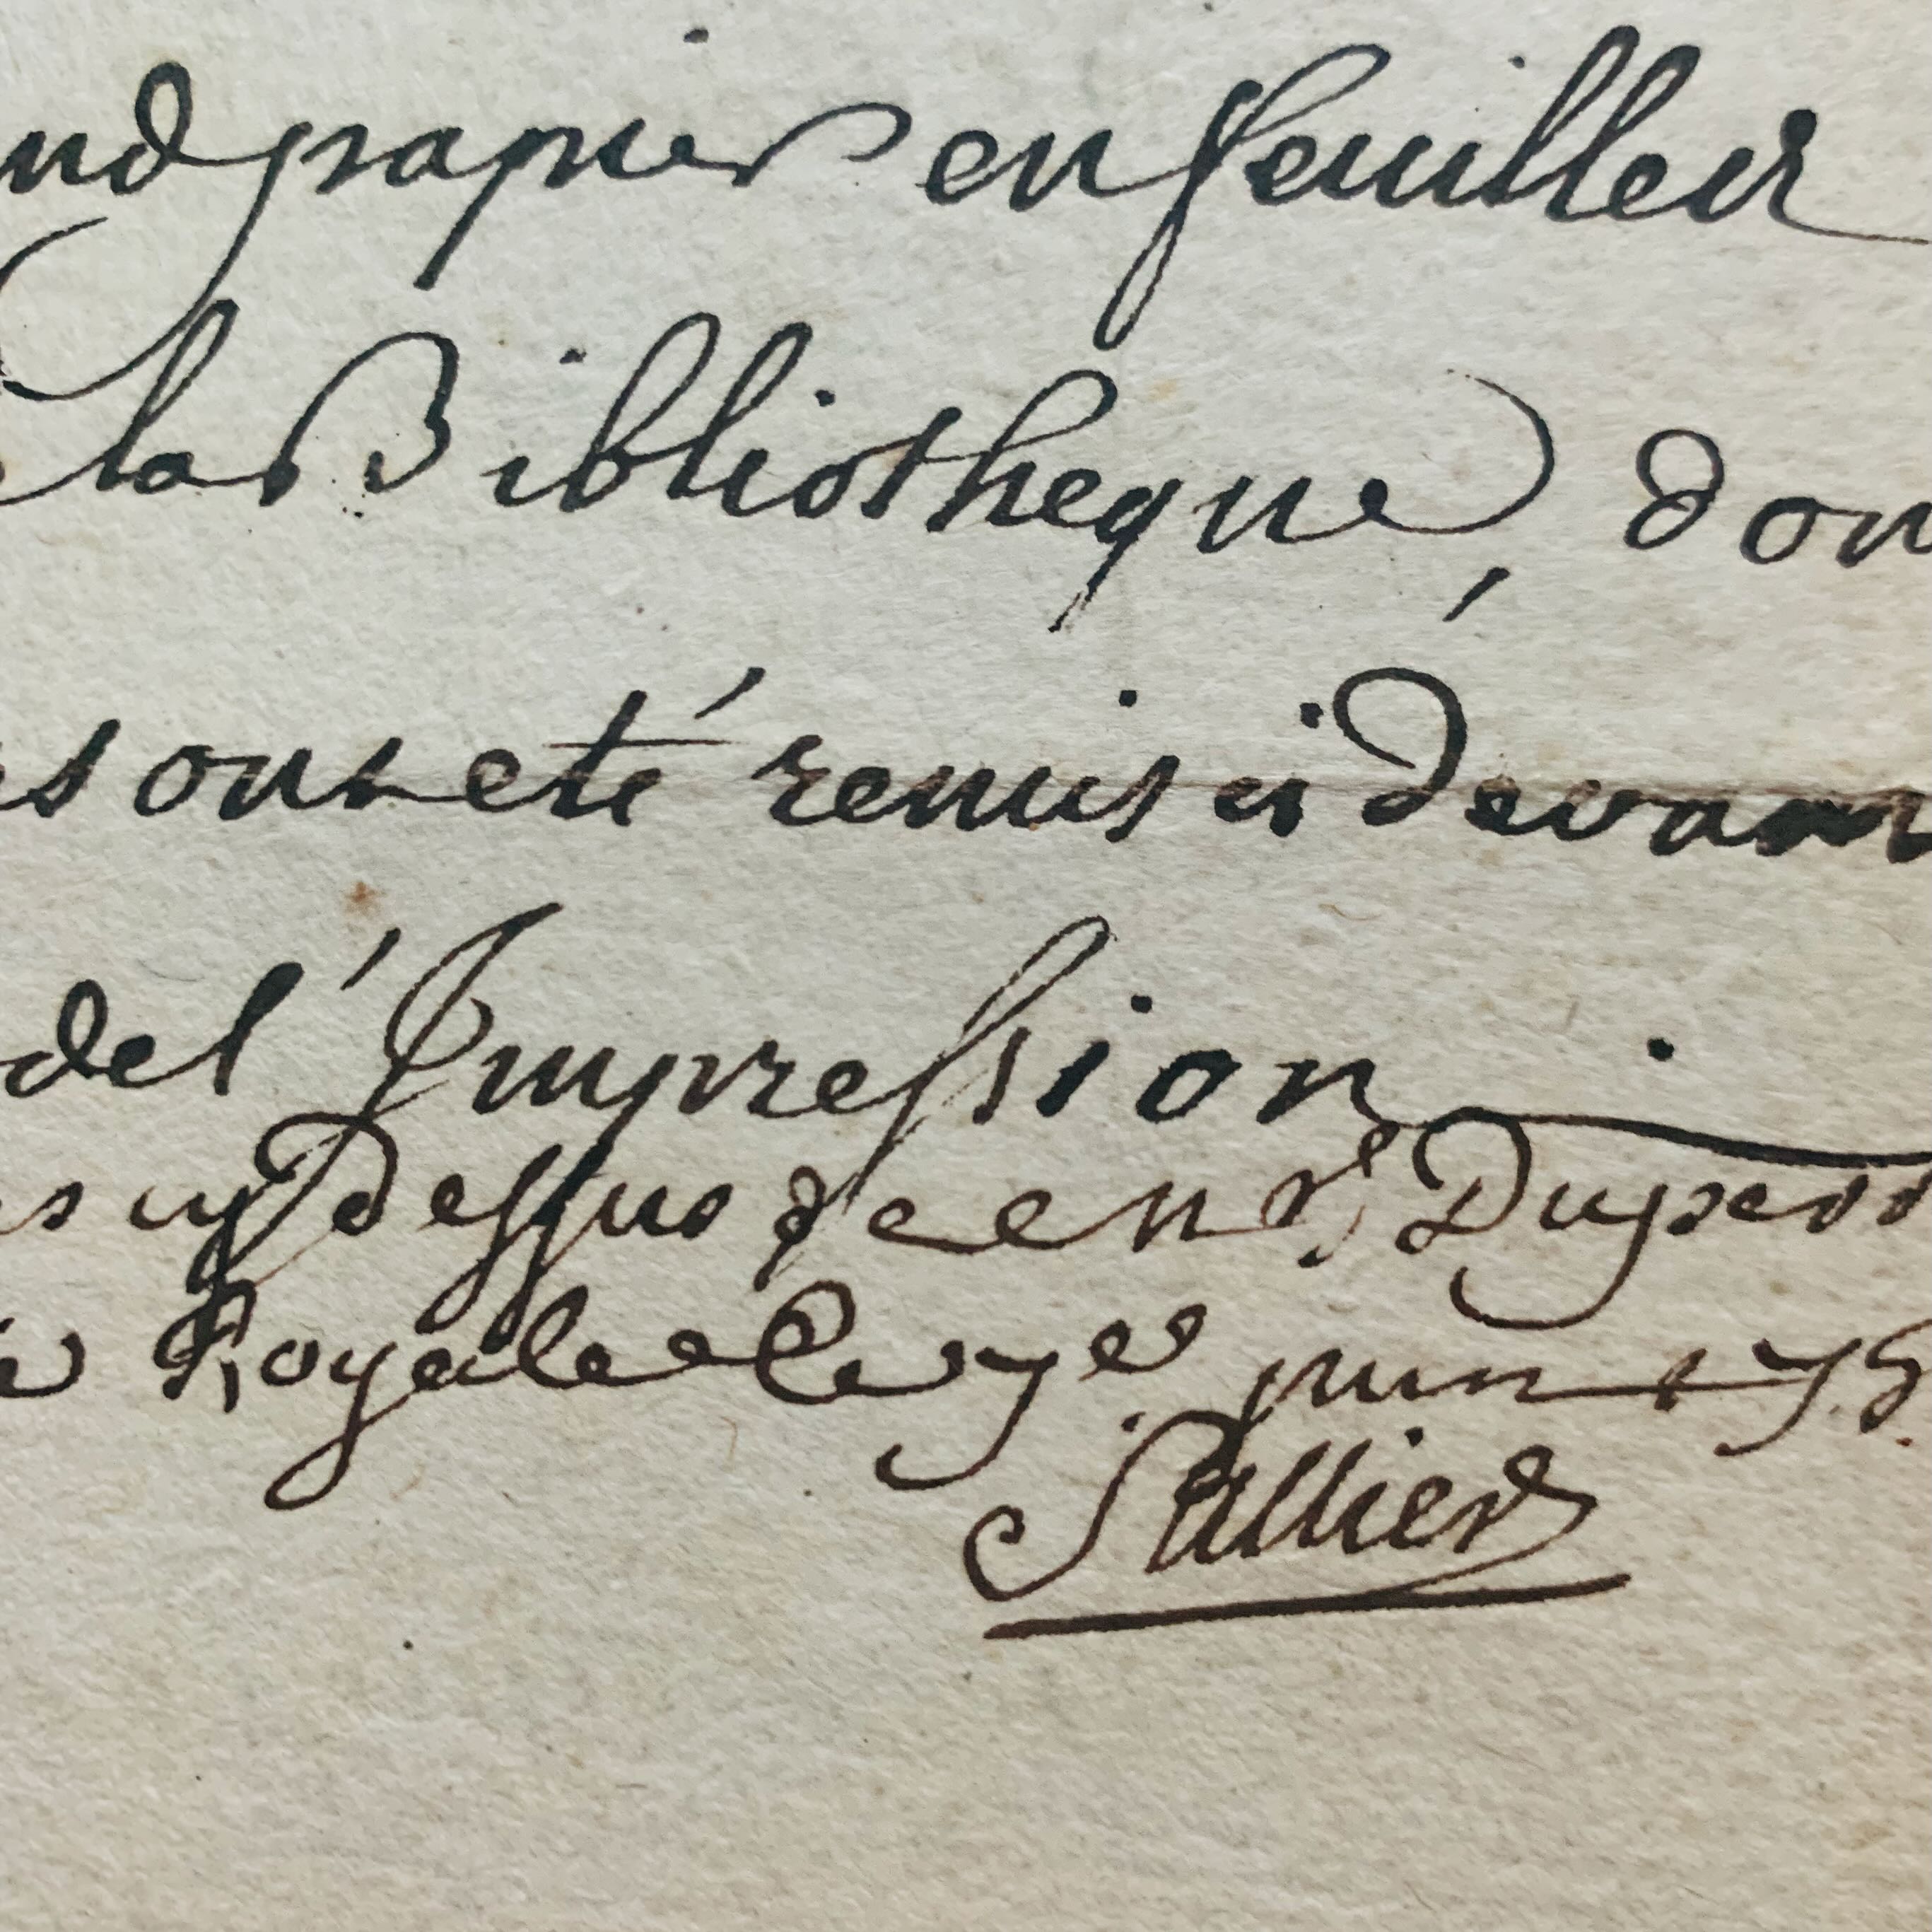 nd papier en feuilles
la Bibliotheque, don
s ont eté remis ci devant
de l'Impression
s cy Dessus de m.r Duperr
Royale Ce 7e juin 175
Sallier